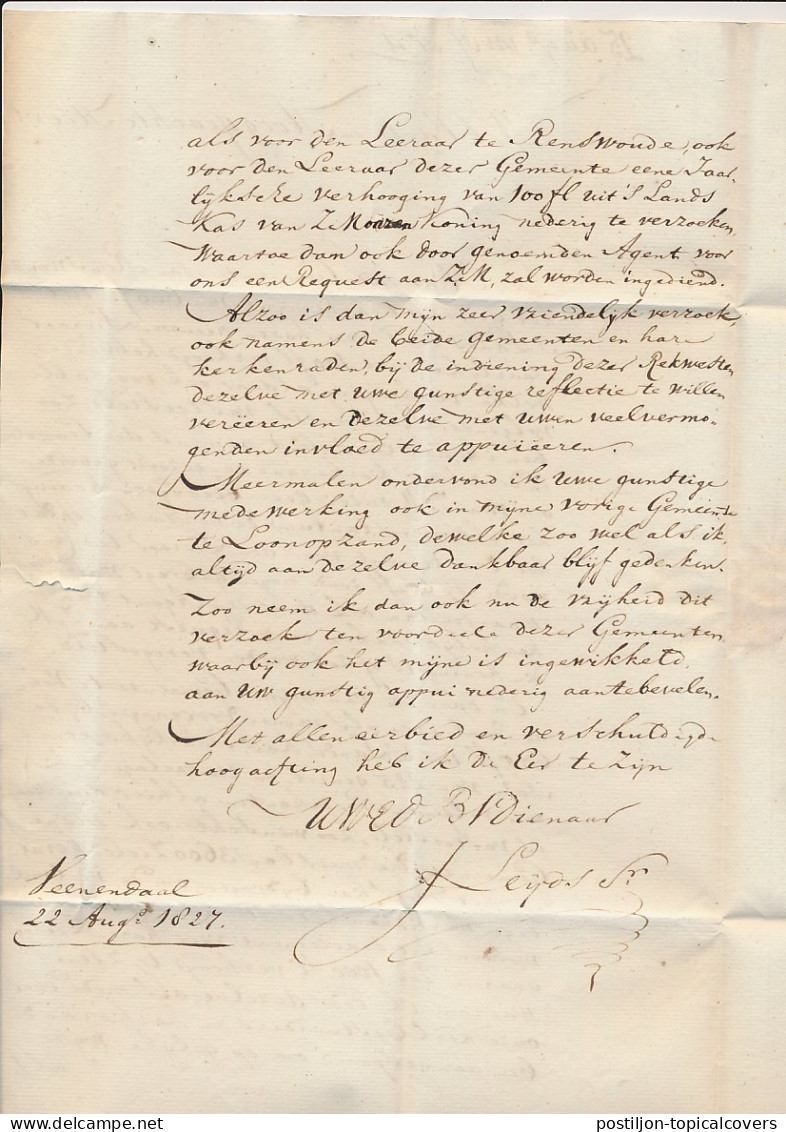 als voor den Leeraar te Renswoude, ook
voor den Leeraar dezer Gemeente eene Jaar-
lijksche verhooging van 100 fl uit 's Lands
Kas van Z M onzen Koning nederig te verzoeken
waartoe dan ook door genoemden Agent voor
ons een Request aan Z.M, zal worden ingediend.
Alzoo is dan mijn zeer vriendelijk verzoek,
ook namens de beide gemeenten en har-
kerkenraden, bij de indiening dezer Rekwesten
dezelve met uwe gunstige reflectie te willen
verëeren en dezelve met uwen veelvermo-
genden invloed te appuiëeren.
Meermalen ondervond ik uwe gunstige
medewerking ook in mijne vorige Gemeente
te Loonopzand, dewelke zoo wel als ik,
altijd aan dezelve dankbaar blijf gedenken.
Zoo neem ik dan ook nu de vrijheid dit
verzoek ten voordeele dezer Gemeenten
waarbij ook het mijne is ingewikkeld,
aan uw gunstig appui nederig aantebevelen.
Met allen eerbied en verschuldigde
hoogachting heb ik de Eer te zijn
UWEd Dienaar
J Leijds Sr
Veenendaal
22 Augs 1827.
postiljon-topicalcovers